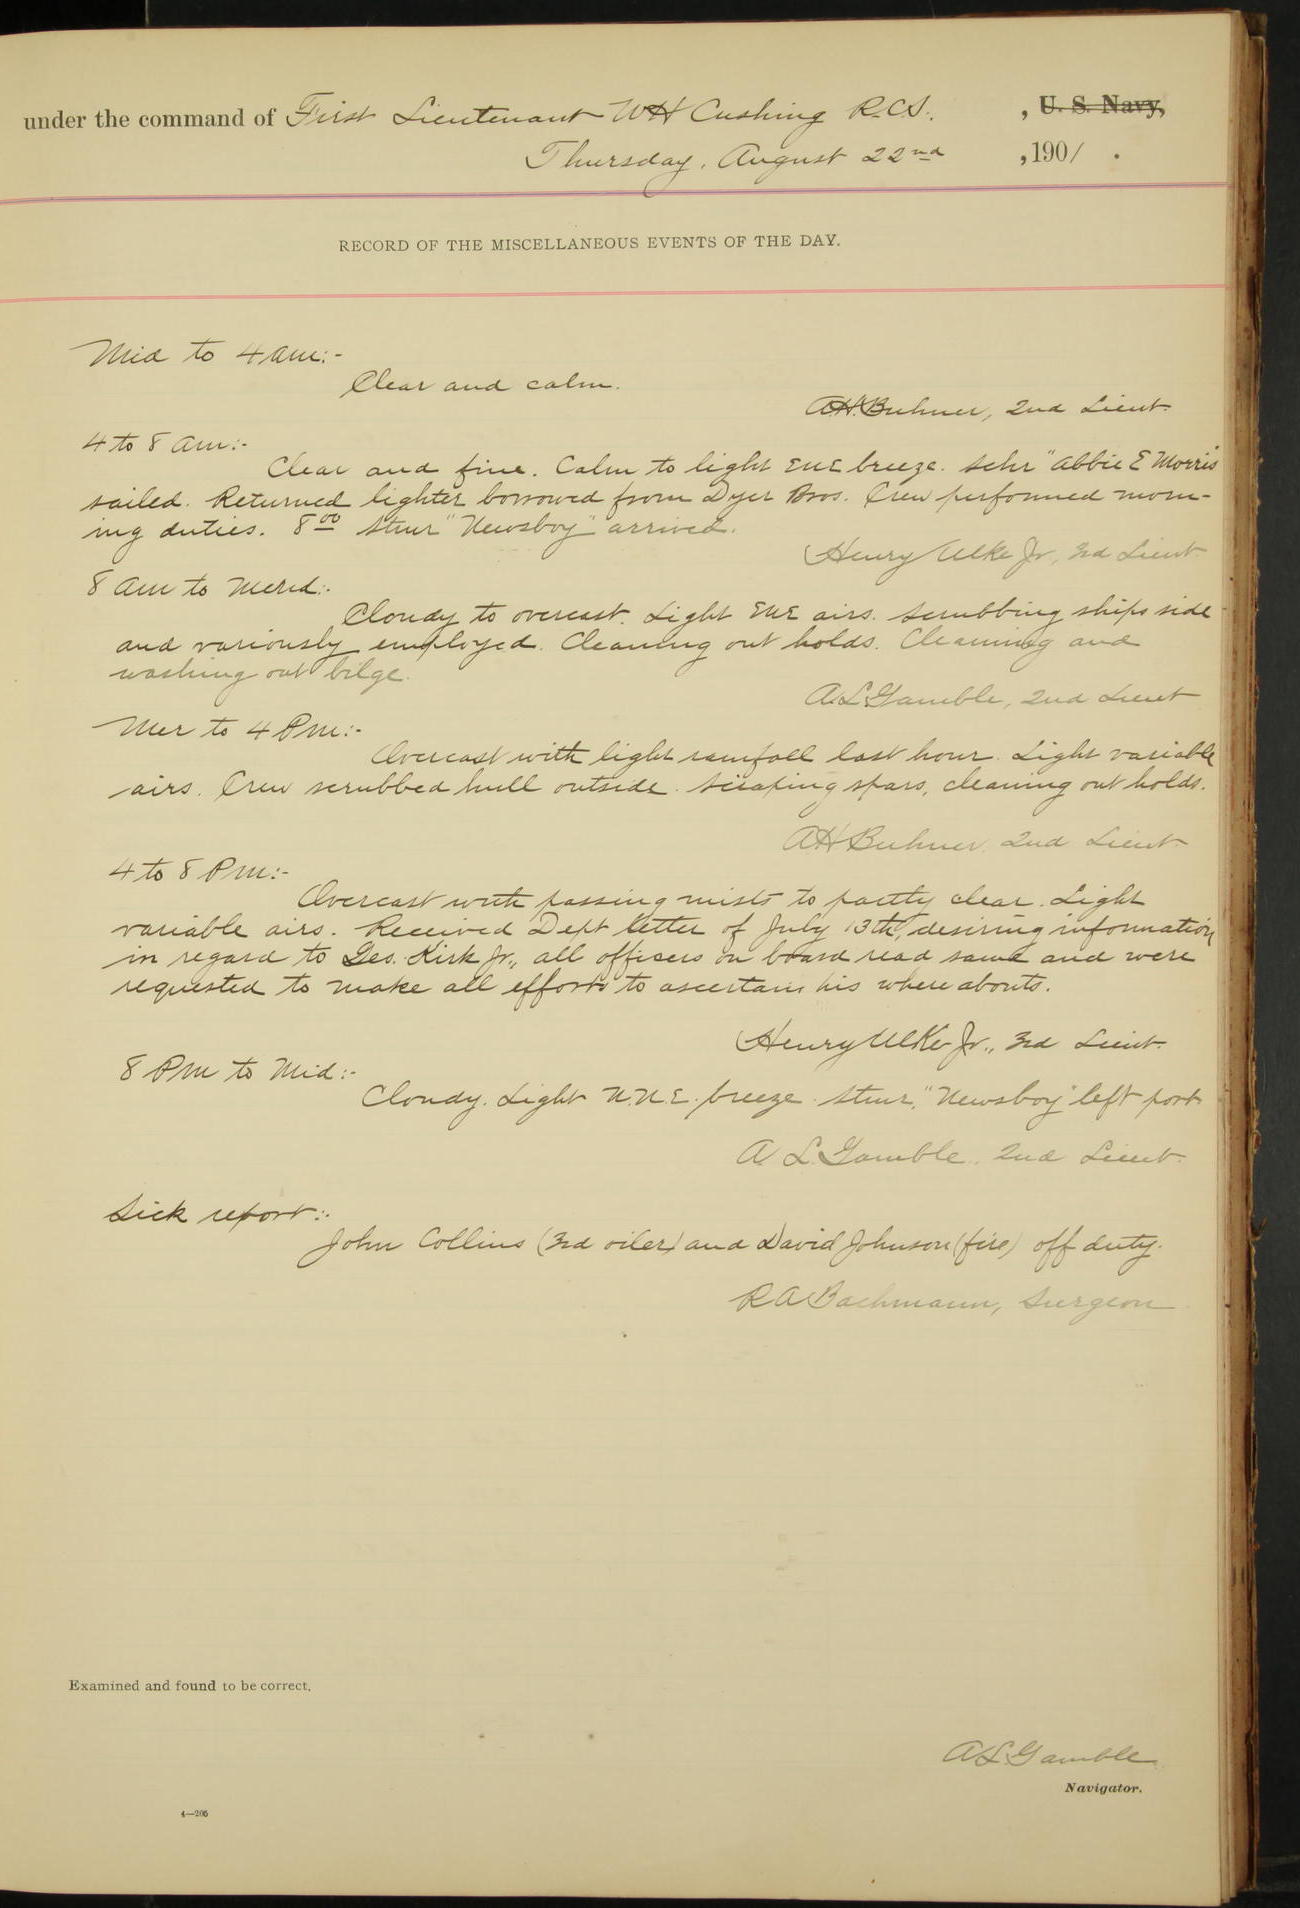 under the command of First Lieutenant WH Cushing R.C.S., , U. S. Navy,
Thursday, August 22nd , 1901 .
RECORD OF THE MISCELLANEOUS EVENTS OF THE DAY.
Mid to 4 am:-
Clear and calm.
A.H. Buhner, 2nd Lieut.
4 to 8 am:-
Clear and fine. Calm to light ENE breeze. Schr "Abbie E Morris
sailed. Returned lighter borrowed from Dyer Bros. Crew performed morn-
ing duties. 8 00 Stmr "Newsboy" arrived.
Henry Ulke Jr, 3rd Lieut.
8 am to Merid:-
Cloudy to overcast. Light ENE airs. Scrubbing ships side
and variously employed. Cleaning out holds. Cleaning and
washing out bilge.
A.L. Gamble, 2nd Lieut
Mer to 4 Pm:-
Overcast with light rainfall last hour. Light variable
airs. Crew scrubbed hull outside. Scraping spars, cleaning out holds.
AH Buhner, 2nd Lieut.
4 to 8 Pm:-
Overcast with passing mists to partly clear. Light
variable airs. Received Dept letter of July 13th, desiring information
in regard to Geo. Kirk Jr., all officers on board read same and were
requested to make all efforts to ascertain his whereabouts.
Henry Ulke Jr., 3rd Lieut.
8 Pm to Mid:-
Cloudy. Light N.N.E. breeze. Stmr, "Newsboy" left port.
A. L. Gamble, 2nd Lieut.
Sick report:-
John Collins (3rd oiler) and David Johnson (fire) off duty.
R A Bachmann, Surgeon
Examined and found to be correct.
A L Gamble
Navigator.
4—205